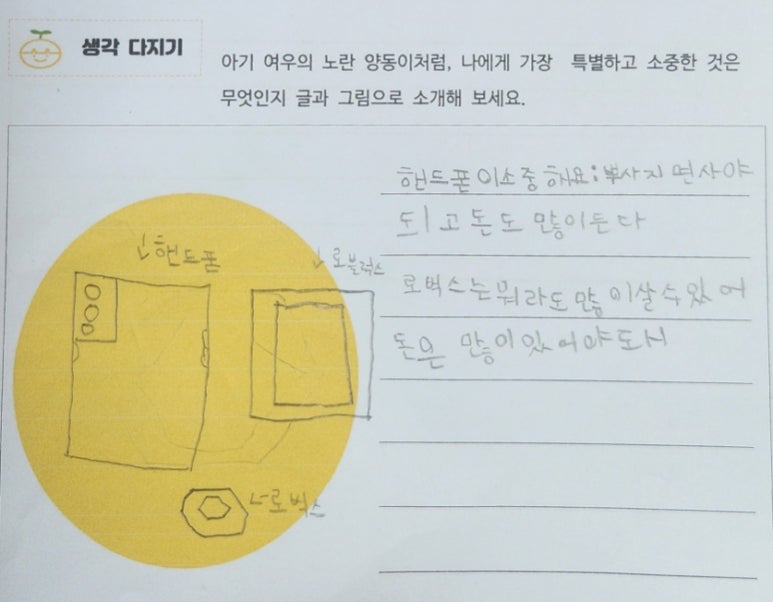 생각 다지기
아기 여우의 노란 양동이처럼, 나에게 가장 특별하고 소중한 것은
무엇인지 글과 그림으로 소개해 보세요.
핸드폰이소중해요: 뿌사지면사야
되고돈도많이든다
로벅스는뭐라도많이살수있어
돈은 많이있어야도서
↓핸드폰
↓로블럭스
←로벅스